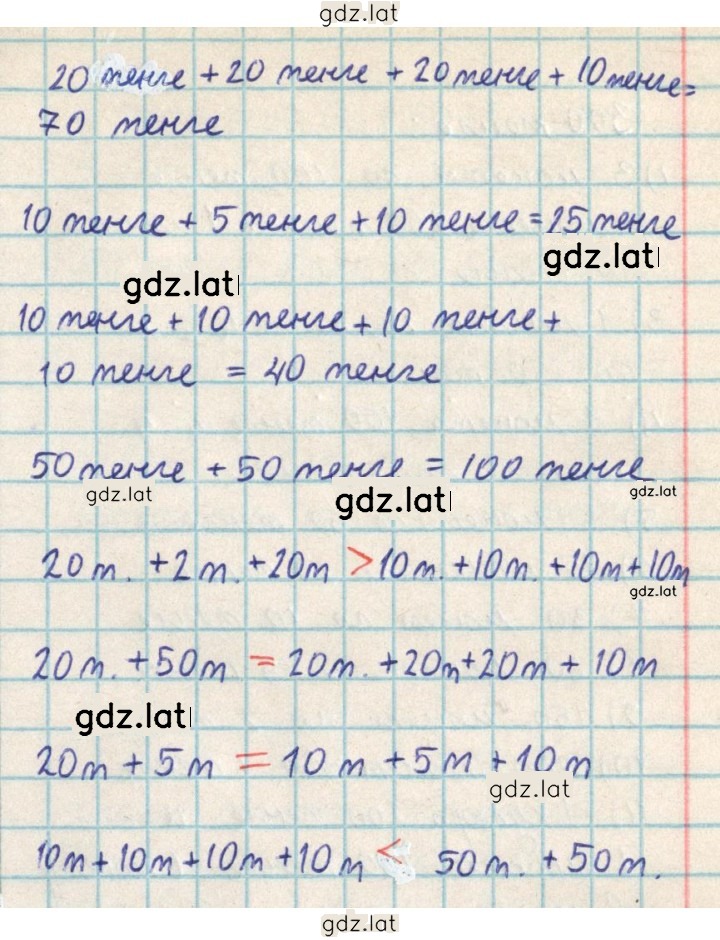 gdz.lat
20 тенге + 20 тенге + 20 тенге + 10 тенге =
70 тенге
10 тенге + 5 тенге + 10 тенге = 25 тенге
gdz.lat
gdz.lat
10 тенге + 10 тенге + 10 тенге +
10 тенге = 40 тенге
50 тенге + 50 тенге = 100 тенге
gdz.lat
gdz.lat
gdz.lat
20т. + 2т. + 20т > 10т. + 10т. + 10т + 10т
gdz.lat
20т. + 50т = 20т. + 20т + 20т + 10т
gdz.lat
20т + 5т = 10т + 5т + 10т
gdz.lat
10т + 10т + 10т + 10т < 50т. + 50т.
gdz.lat